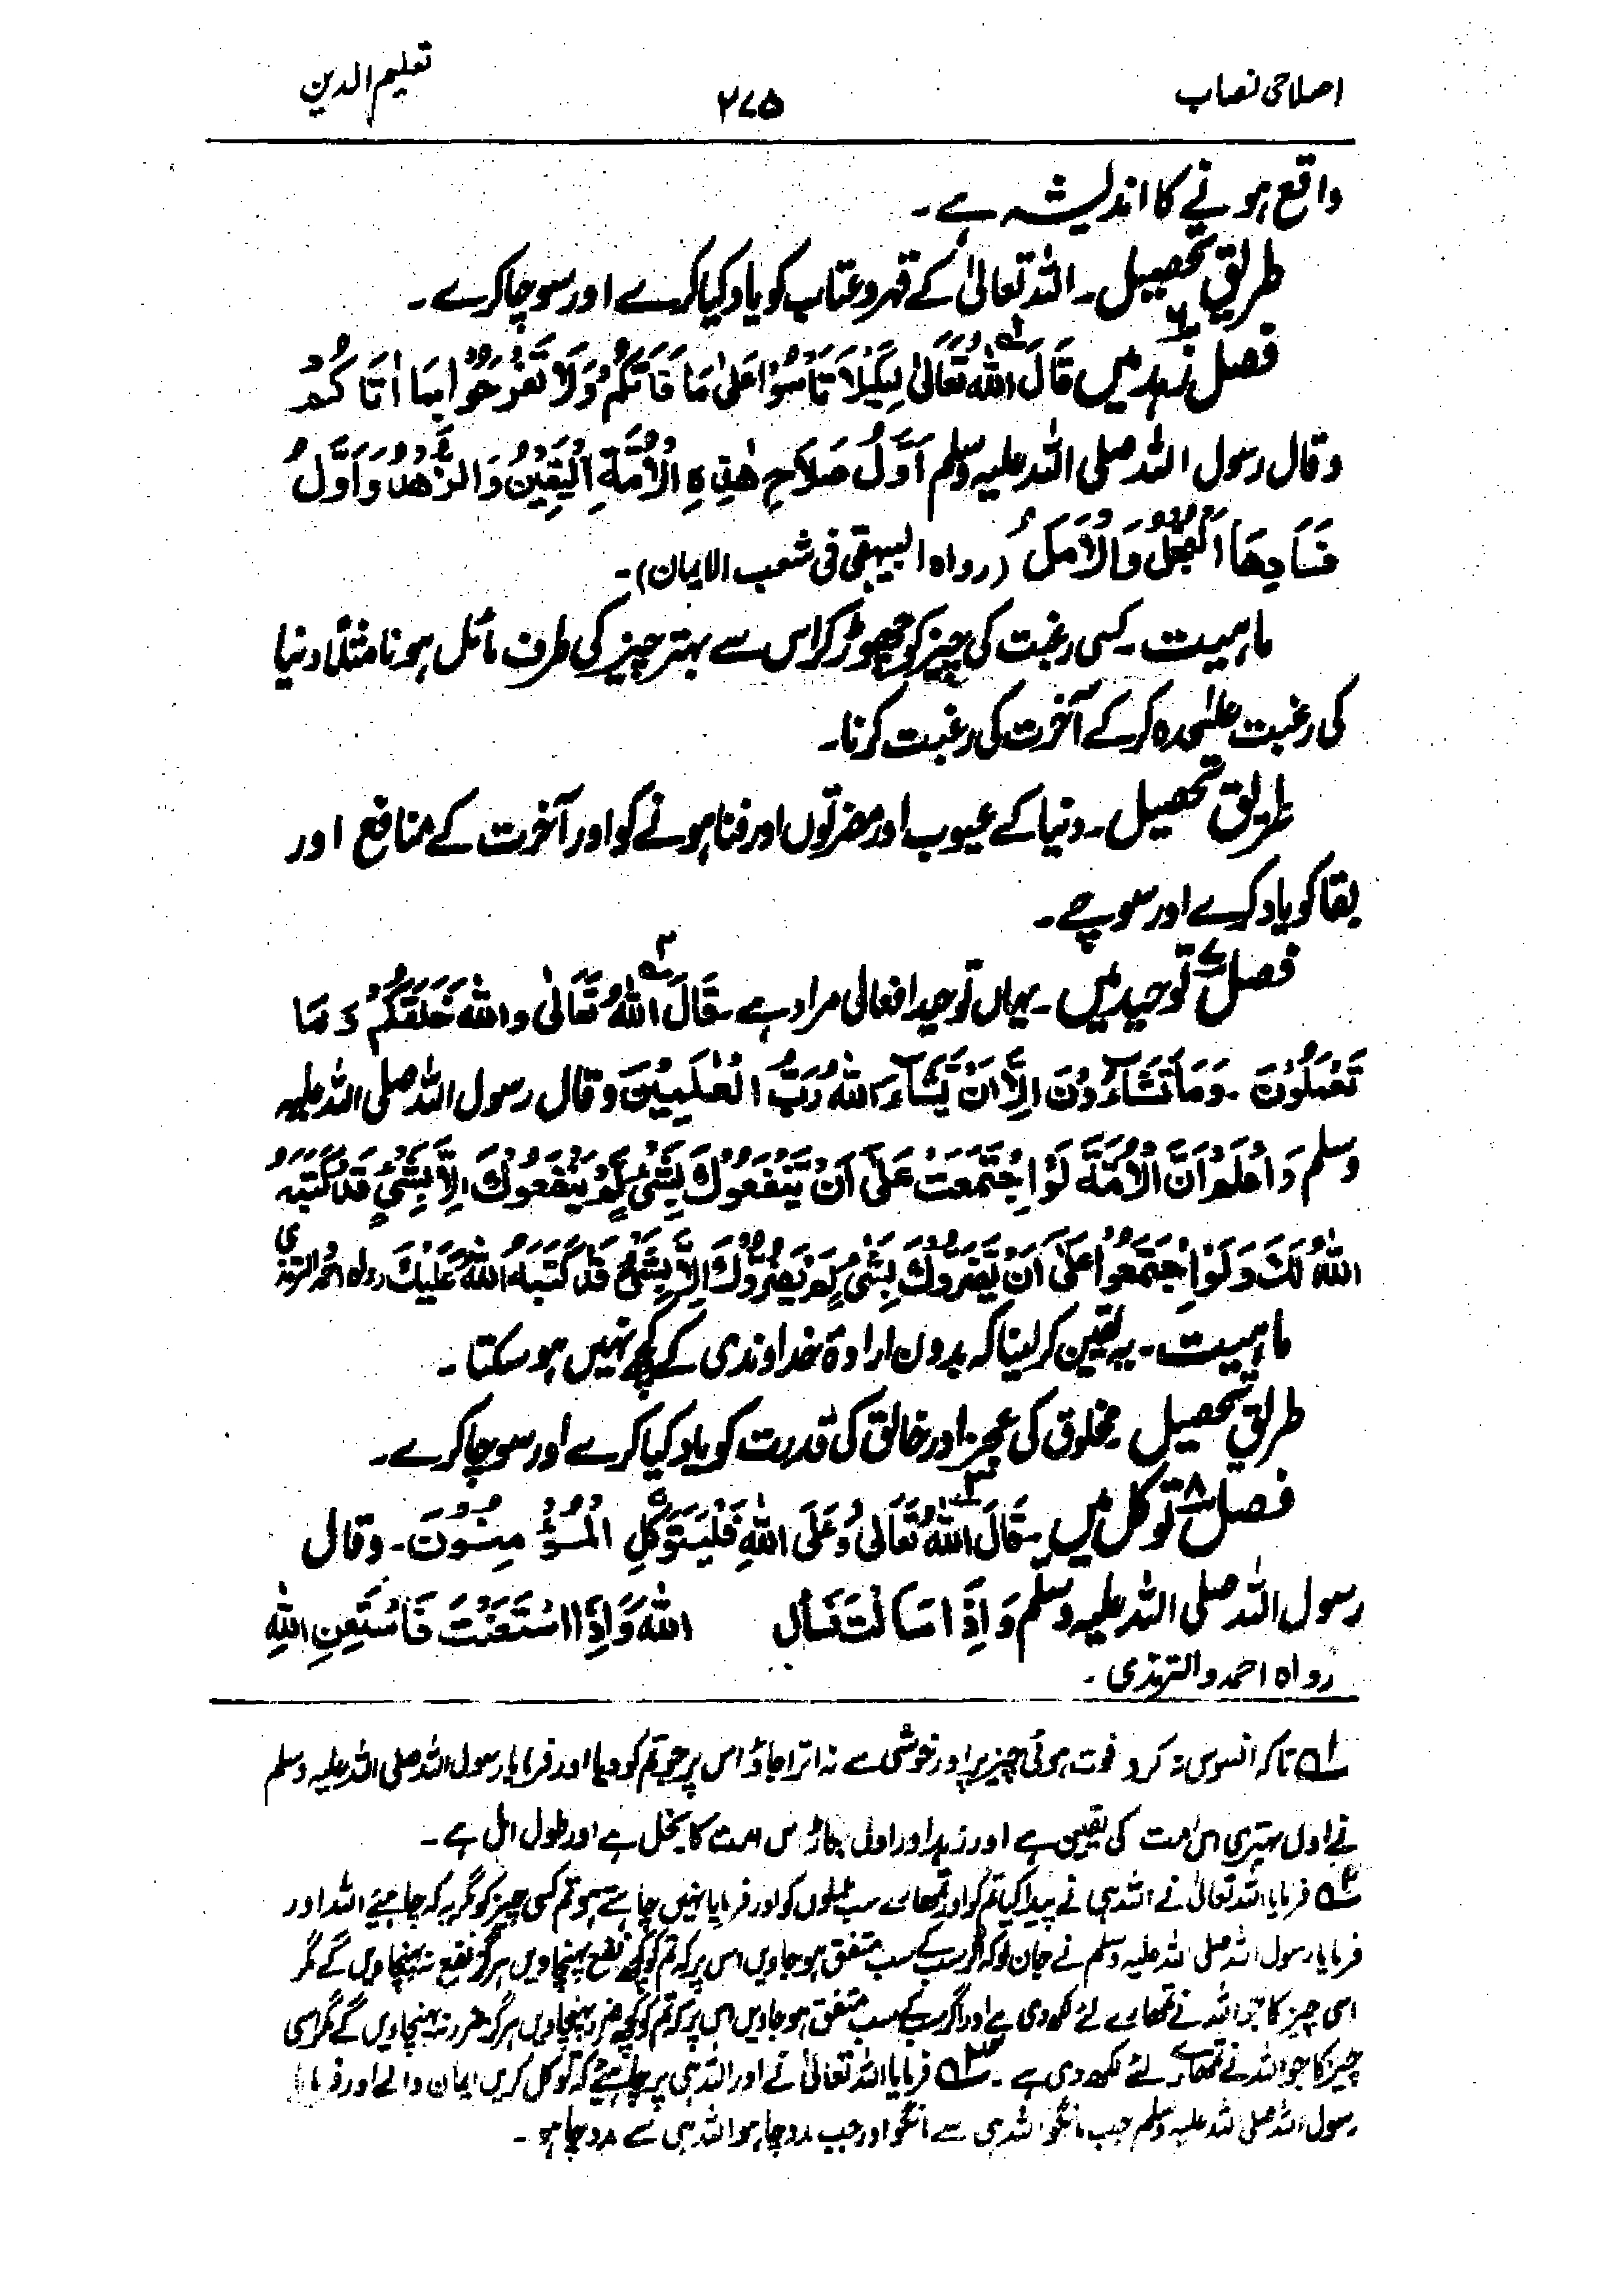 اصلاحی نصاب ۲۷۵ تعلیم الدین
واقع ہونے کا اندیشہ ہے۔
طریق تحصیل۔ اللہ تعالیٰ کے قہر و عتاب کو یاد کیا کرے اور سوچا کرے۔
فصل ۶ زہد میں قَالَ اللّٰهُ تَعَالٰی لِكَیْلَا تَأْسَوْا عَلٰی مَا فَاتَكُمْ وَلَا تَفْرَحُوْا بِمَا اٰتَاكُمْ
وقال رسول اللہ صلی اللہ علیہ وسلم اَوَّلُ صَلَاحِ هٰذِهِ الْاُمَّةِ الْیَقِیْنُ وَالزُّهْدُ وَاَوَّلُ
فَسَادِهَا الْبُخْلُ وَالْاَمَلُ (رواہ البیہقی فی شعب الایمان)۔
ماہیت۔ کسی رغبت کی چیز کو چھوڑ کر اس سے بہتر چیز کی طرف مائل ہونا مثلاً دنیا
کی رغبت علیٰحدہ کر کے آخرت کی رغبت کرنا۔
طریق تحصیل۔ دنیا کے عیوب اور مضرتوں اور فنا ہونے کو اور آخرت کے منافع اور
بقا کو یاد کرے اور سوچے۔
فصل ۷ توحید میں۔ یہاں توحید افعالی مراد ہے۔ قَالَ اللّٰهُ تَعَالٰی وَاللّٰهُ خَلَقَكُمْ وَمَا
تَعْمَلُوْنَ۔ وَمَا تَشَآءُوْنَ اِلَّا اَنْ یَّشَآءَ اللّٰهُ رَبُّ الْعٰلَمِیْنَ وقال رسول اللہ صلی اللہ علیہ
وسلم وَاعْلَمْ اَنَّ الْاُمَّةَ لَوِ اجْتَمَعَتْ عَلٰی اَنْ یَّنْفَعُوْكَ بِشَیْءٍ لَمْ یَنْفَعُوْكَ اِلَّا بِشَیْءٍ قَدْ كَتَبَهُ
اللّٰهُ لَكَ وَلَوِ اجْتَمَعُوْا عَلٰی اَنْ یَّضُرُّوْكَ بِشَیْءٍ لَمْ یَضُرُّوْكَ اِلَّا بِشَیْءٍ قَدْ كَتَبَهُ اللّٰهُ عَلَیْكَ رواہ احمد والترمذی
ماہیت۔ یہ یقین کر لینا کہ بدون ارادۂ خداوندی کے کچھ نہیں ہو سکتا۔
طریق تحصیل۔ مخلوق کی عجز اور خالق کی قدرت کو یاد کیا کرے اور سوچا کرے۔
فصل ۸ توکل میں۔ قَالَ اللّٰهُ تَعَالٰی وَعَلَی اللّٰهِ فَلْیَتَوَكَّلِ الْمُؤْمِنُوْنَ۔ وقال
رسول اللہ صلی اللہ علیہ وسلم وَاِذَا سَاَلْتَ فَسْاَلِ اللّٰهَ وَاِذَا اسْتَعَنْتَ فَاسْتَعِنْ بِاللّٰهِ
رواہ احمد والترمذی۔
۱؎ تاکہ افسوس نہ کرو فوت ہوئی چیز پر اور خوشی سے نہ اترا جاؤ اس پر جو تم کو دیا اور فرمایا رسول اللہ صلی اللہ علیہ وسلم
نے اول بہتری اس امت کی یقین ہے اور زہد اور اول بگاڑ اس امت کا بخل ہے اور طول امل ہے۔
۲؎ فرمایا اللہ تعالیٰ نے اللہ ہی نے پیدا کیا تم کو اور تمھارے سب عملوں کو اور فرمایا نہیں چاہتے ہو تم کسی چیز کو مگر یہ کہ چاہے اللہ اور
فرمایا رسول اللہ صلی اللہ علیہ وسلم نے جان لو کہ اگر سب کے سب متفق ہو جاویں اس پر کہ تم کو کچھ نفع پہنچاویں ہرگز نفع نہ پہنچاویں گے مگر
اسی چیز کا جو اللہ نے تمھارے لئے لکھ دی ہے اور اگر سب کے سب متفق ہو جاویں اس پر کہ تم کو کچھ ضرر پہنچاویں ہرگز ضرر نہ پہنچاویں گے مگر اسی
چیز کا جو اللہ نے تمھارے لئے لکھ دی ہے۔ ۳؎ فرمایا اللہ تعالیٰ نے اور اللہ ہی پر چاہئے کہ توکل کریں ایمان والے اور فرمایا
رسول اللہ صلی اللہ علیہ وسلم جب مانگو اللہ ہی سے مانگو اور جب مدد چاہو اللہ ہی سے مدد چاہو۔